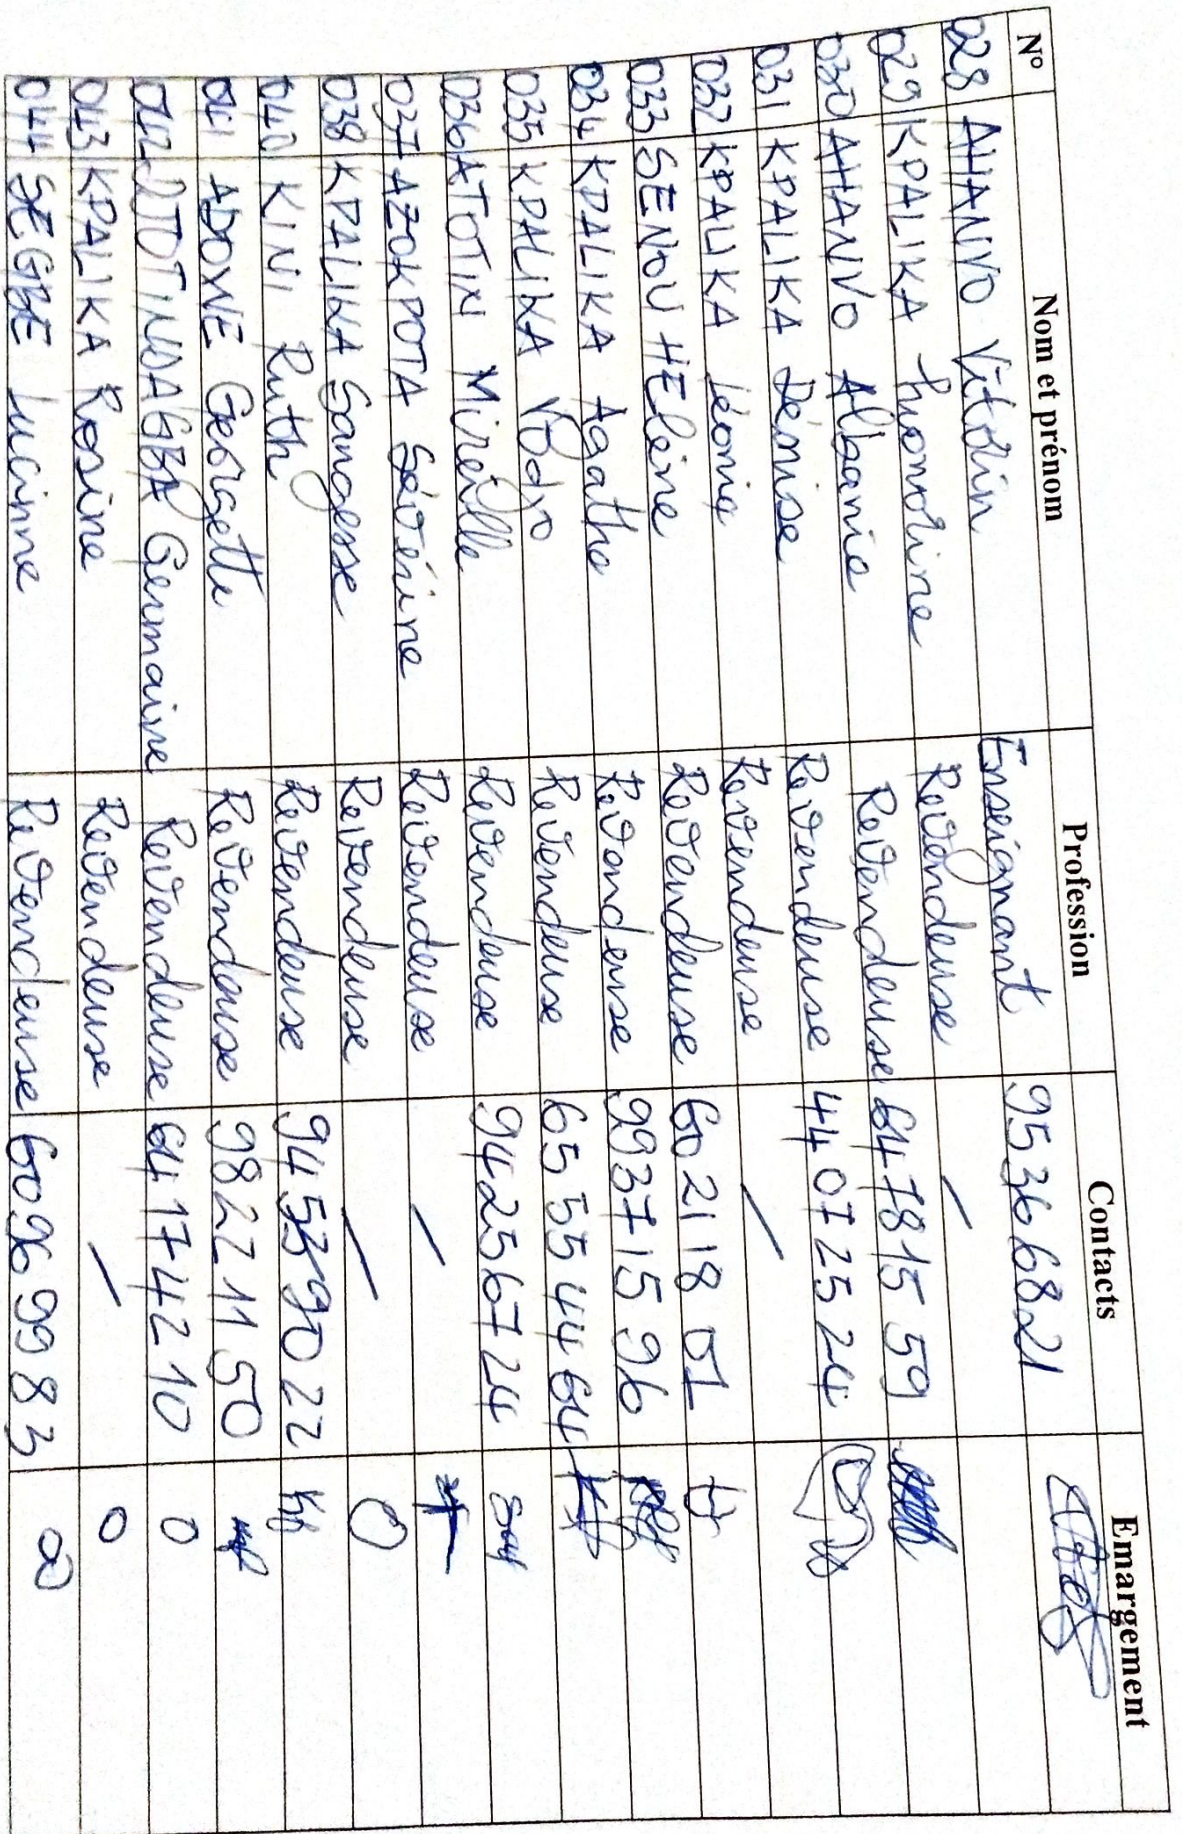 N° Nom et prénom Profession Contacts Emargement
028 AHANVO Vitorin Enseignant 95366821
029 KPALIKA honorine Revendeuse /
030 AHANVO Albanie Revendeuse 64781559
031 KPALIKA Dénise Revendeuse 44072524
032 KPALIKA Léonie Revendeuse /
033 SENOU HElène Revendeuse 60211801
034 KPALIKA Agathe Revendeuse 99371596
035 KPALIKA Vodjo Revendeuse 65554464
036 ATOTIN Mireille Revendeuse 94256724
037 AZOKPOTA Séverine Revendeuse /
038 KPALIKA Sangesse Revendeuse /
040 KINI Ruth Revendeuse 94539022
041 ADONE Georgette Revendeuse 98221150
042 Germaine Revendeuse 64174210
043 KPALIKA Rosine Revendeuse / 0
044 SEGBE Lucinne Revendeuse 60969983